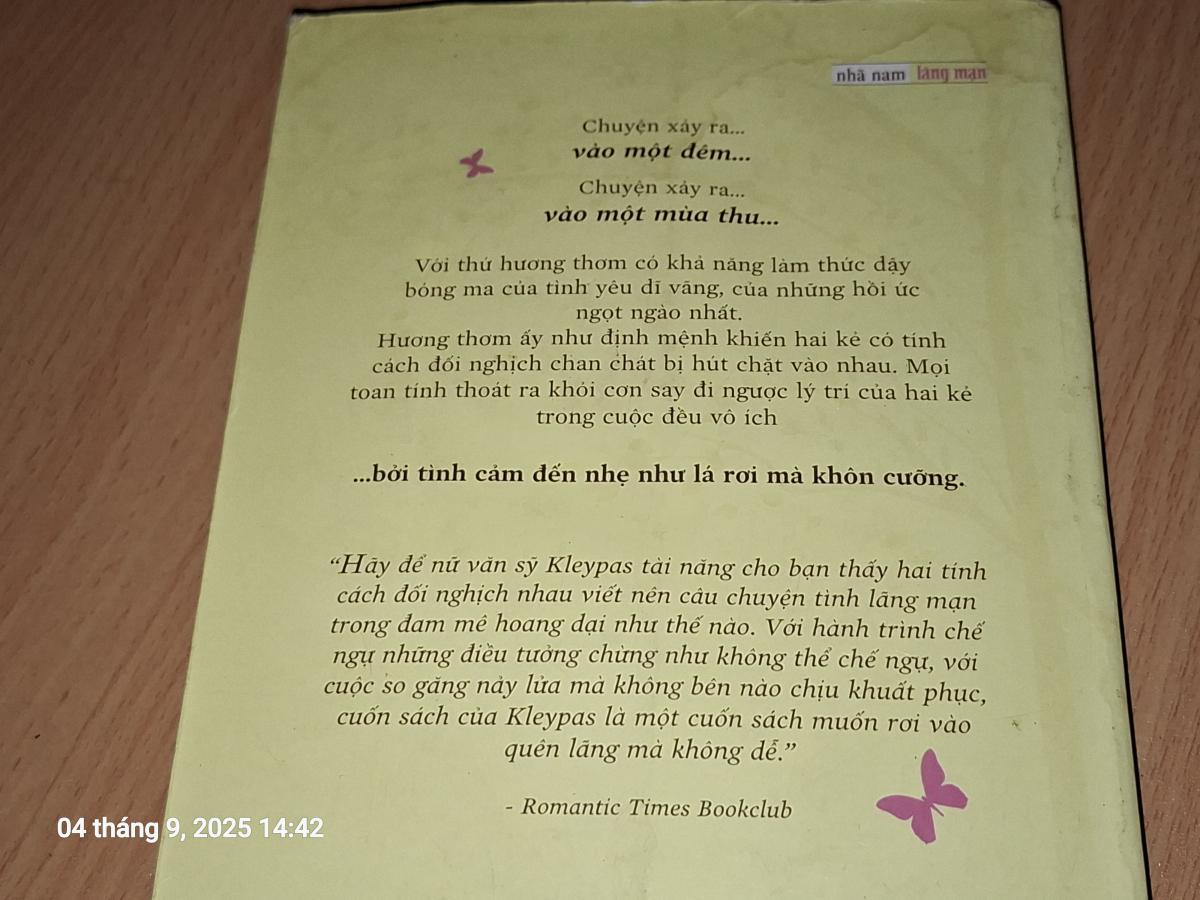 nhã nam lãng mạn
Chuyện xảy ra...
vào một đêm...
Chuyện xảy ra...
vào một mùa thu...
Với thứ hương thơm có khả năng làm thức dậy
bóng ma của tình yêu dĩ vãng, của những hồi ức
ngọt ngào nhất.
Hương thơm ấy như định mệnh khiến hai kẻ có tính
cách đối nghịch chan chát bị hút chặt vào nhau. Mọi
toan tính thoát ra khỏi cơn say đi ngược lý trí của hai kẻ
trong cuộc đều vô ích
...bởi tình cảm đến nhẹ như lá rơi mà khôn cưỡng.
“Hãy để nữ văn sỹ Kleypas tài năng cho bạn thấy hai tính
cách đối nghịch nhau viết nên câu chuyện tình lãng mạn
trong đam mê hoang dại như thế nào. Với hành trình chế
ngự những điều tưởng chừng như không thể chế ngự, với
cuộc so găng nảy lửa mà không bên nào chịu khuất phục,
cuốn sách của Kleypas là một cuốn sách muốn rơi vào
quên lãng mà không dễ.”
- Romantic Times Bookclub
04 tháng 9, 2025 14:42